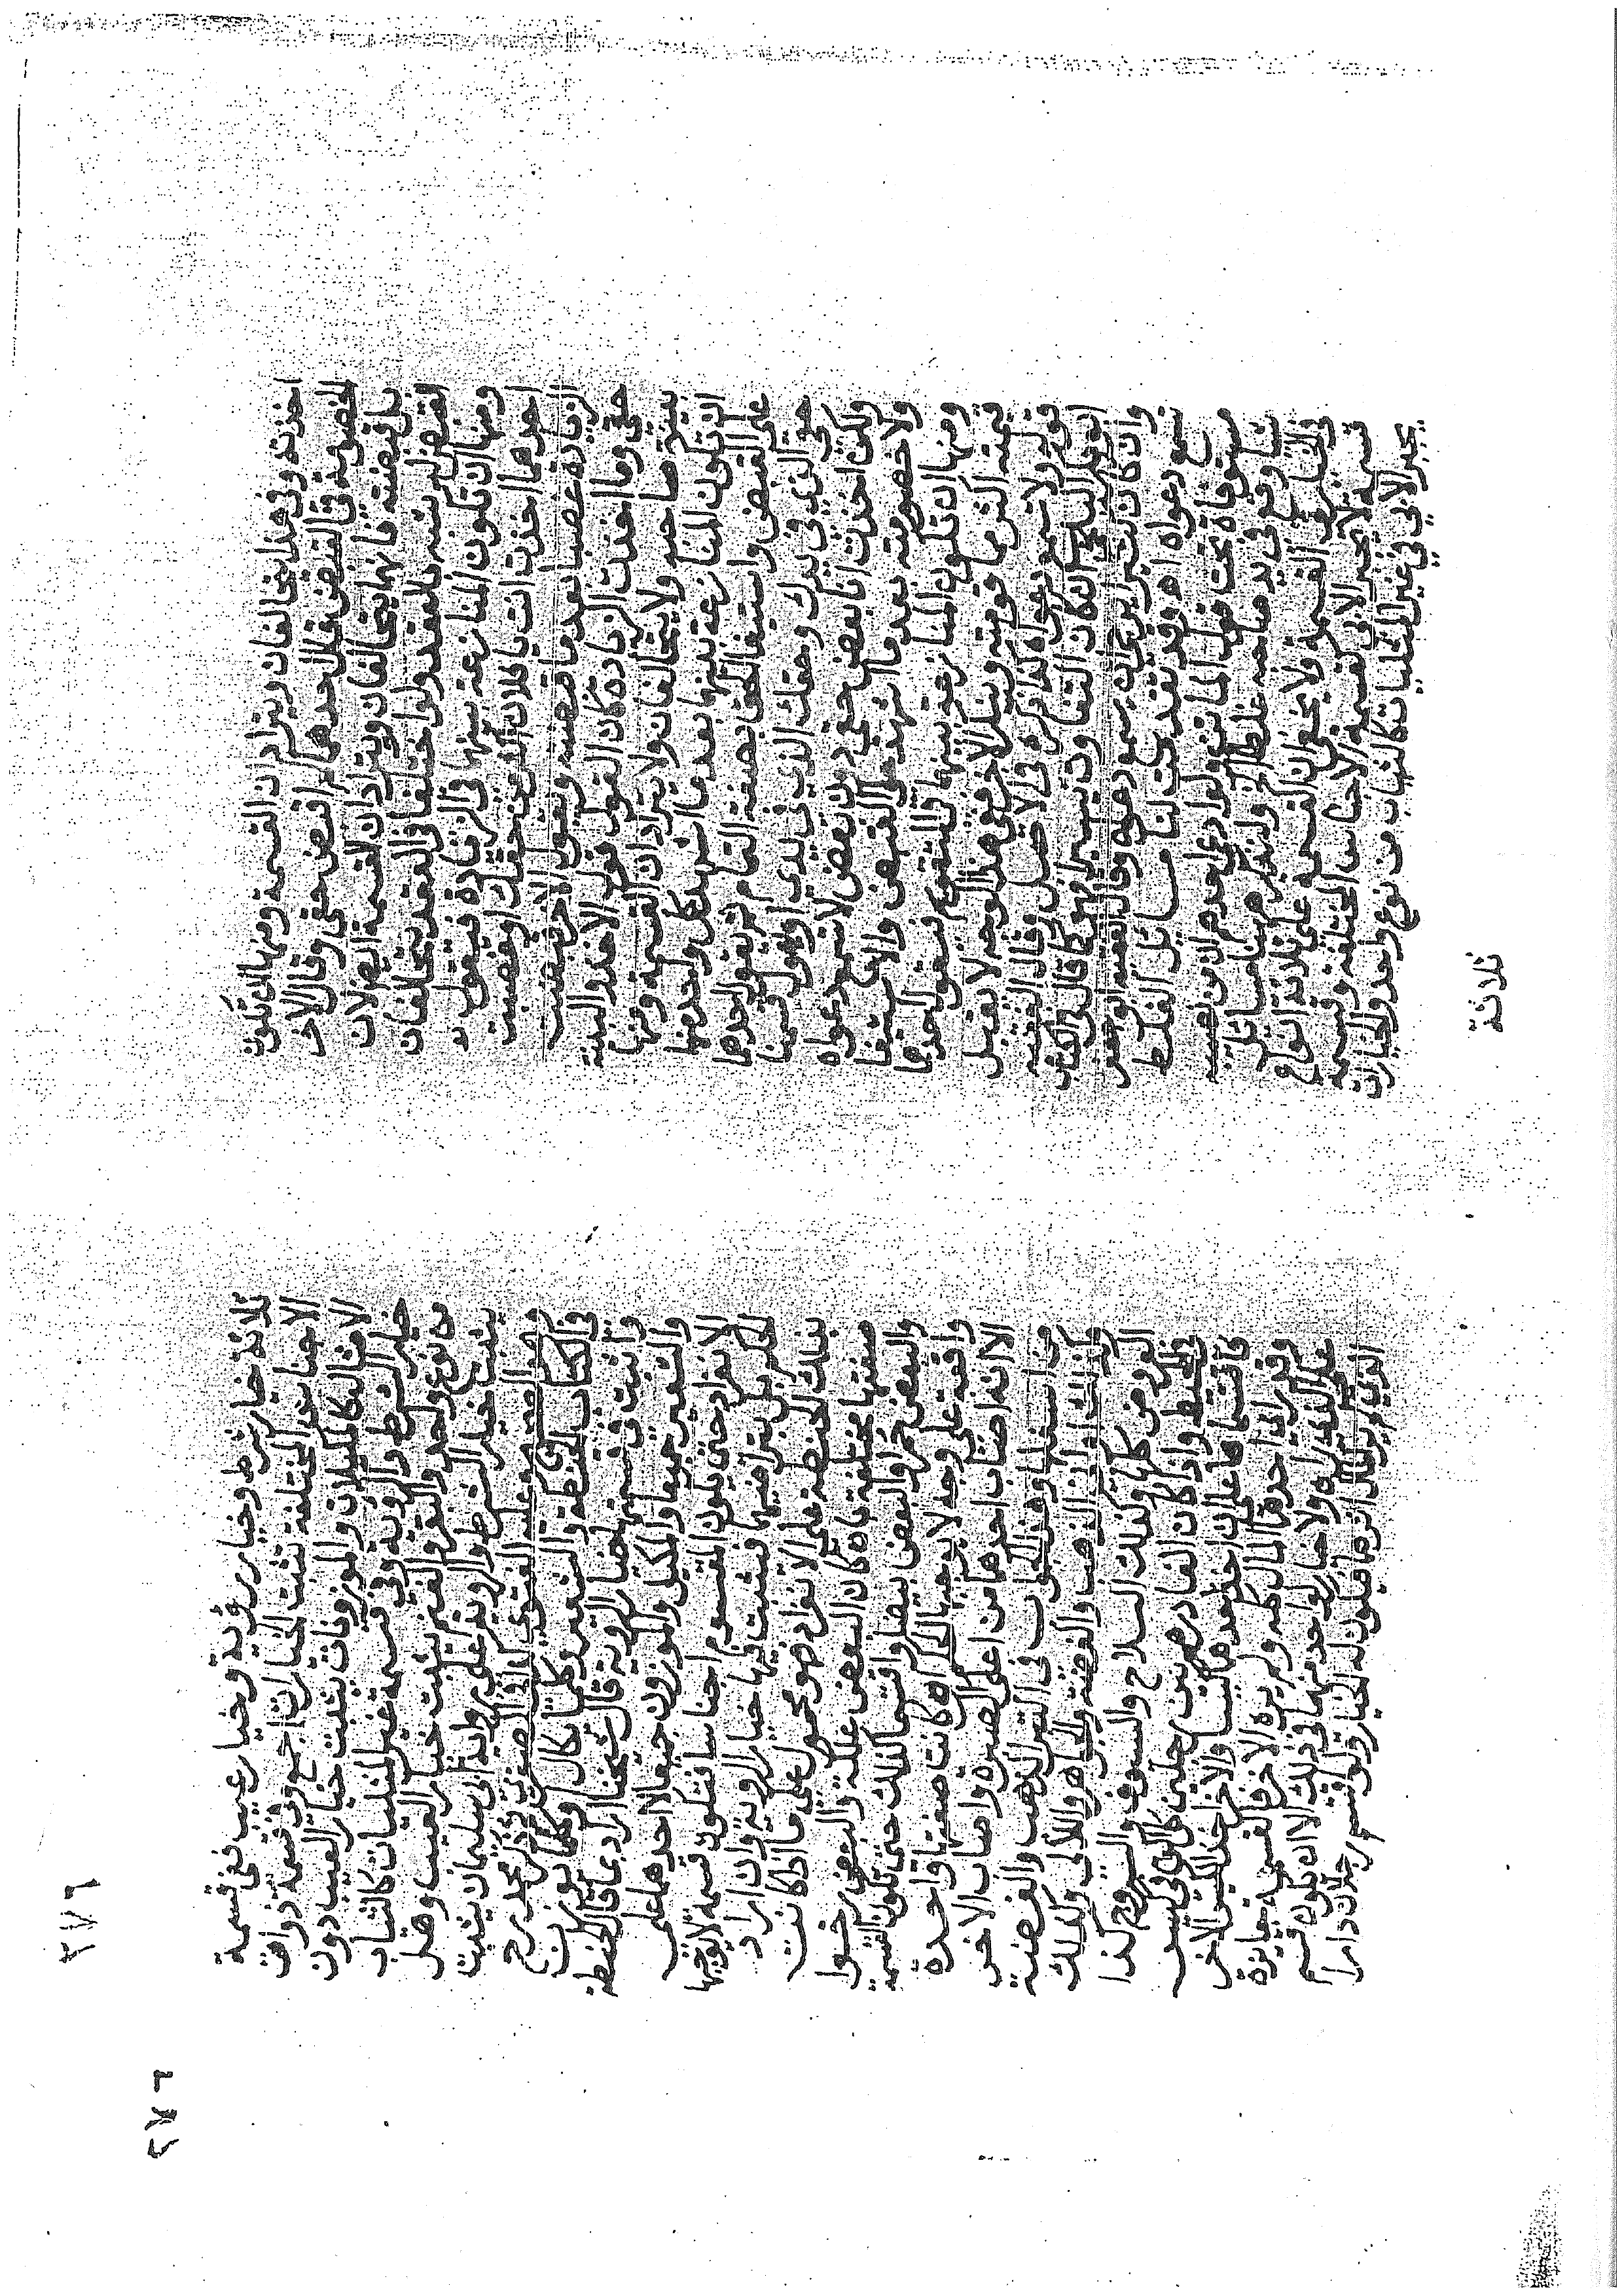 اخذته وفي هذا يتحالفان ويترادان القسمة ومنها ان تكون
الخصومة في القبض قال احدهما لم اقبض حقي وقال الاخر
بل قبضته فانهما يتحالفان ويترادان القسمة ايضا لان
القبض له شبه بالعقد ولو اختلفا في العقد يتحالفان
ومنها ان تكون المنازعة بينهما في الزيادة فيقول
احدهما اخذت انت يا فلان اكثر من حقك او غصبت
الزيادة غصبا بعد ما قبضته ويقول الاخر قبضت
حقي وما اخذت الزيادة كان القول قول الاخذ والبينة
بينة صاحبه ولا يتحالفان ولا يترادان القسمة ومنها
ان تكون المنازعة بينهما بعد ما اشهد كل واحد منهما
على القبض واستيفا الحق بصفة التمام ثم يقول احدهما
حقي الذي في يدك وحقك الذي في يدي او يقول قسمنا
ولكن اخذت انا بعض حقي دون بعض لا تسمع دعواه
ولا خصومته بعد ما اشهد على القبض والاستيفا
ومنها ان تكون المنازعة بينهما في التقويم فيقول احدهما
قيمته اكثر مما قومته وينكر الاخر ففي هذا الوجه لا تقبل
قوله ولا تسمع دعواه كذا ذكره في الاصل وقال الفقيه
ابو بكر البلخي ان كان التفاوت يسيرا فهو كما قال في
وان كان كثيرا يجب ان تسمع دعواه وقال الفقيه ابو جعفر
تسمع دعواه اهـ وقد تقدمت لنا مسايل الغلط
مستوفاة تحت قول الماتن ولو ادعى احدهم ان من نصيبه
شيا وقع في يد صاحبه غلطا الخ ولنذكر هنا مسائل
في الخيار في القسمة ولا يخفى ان القسمة على ثلاثة انواع
قسمة لا يجبر الابي كقسمة الاجناس المختلفة وقسمة
يجبر الابي في غير المثليات كالثياب من نوع واحد والخيارات
ثلاثة
٢٧٦
٢٧٦
ثلاثة خيار شرط وخيار رؤية وخيار عيب ففي قسمة
الاجناس المختلفة تثبت الخيارات اجمع وفي قسمة ذوات
الامثال كالمكيلات والموزونات يثبت خيار العيب دون
خيار الشرط والرؤية وفي قسمة غير المثليات كالثياب
من نوع واحد والبقر والغنم يثبت خيار العيب وهل
يثبت خيار الشرط والرؤية على رواية ابي سليمان يثبت
وهو الصحيح وعليه الفتوى محمد رح
في الكتاب الحنطة والشعير وكل ما يكال وكل ما يوزن
واثبت في قسمتها خيار الرؤية قال شيخنا اراد بما قال الحنطة
والشعير جميعا والمكيل والموزون جميعا لا احدهما على
الانفراد حتى يكون المقسوم اجناسا فتكون قسمة لا يوجبها
الحكم بل بتراضيهما فيثبت فيها خيار الرؤية وان اراد
بذلك الحنطة على الانفراد فهو محمول على ما اذا كانت
صفتها مختلفة بان كان البعض علكة والبعض رخوا
والبعض حمرا والبعض بيضا واقتسما كذلك حتى تكون القسمة
واقعة على وجه لا يوجبها الحكم او كانت صفتها واحدة
الا انه اصاب احدهما من اعلى الصبرة واصاب الاخر
من اسفلها وهو الجواب في التبر الذهب والفضة
وكذلك اواني الذهب والفضة والجواهر واللآلي وكذلك
العروض كلها وكذلك السلاح والسيوف والسروج كذا
في المحيط واذا كان الفا درهم بين رجلين كل الف في كيس
فاقتسما على ان اخذ احدهما كيسا والاخر اخذ الكيس الاخر
وقد راى احدهما المال كله ولم يره الاخر فالقسمة جايزة
على الذي راه ولا خيار لواحد منهما في ذلك الا ان يكون قسم
الذي لم ير المال شرهما فيكون له الخيار ولو اقتسم رجلان دارا